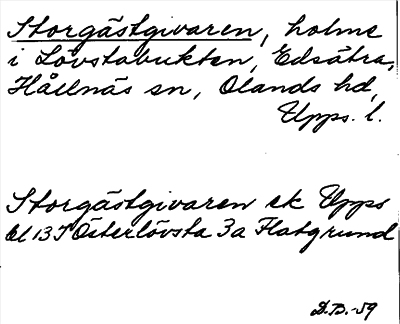 Storgästgivaren, holme
i Lövstabukten, Edsätra,
Hållnäs sn, Olands hd,
Upps. l.
Storgästgivaren ek Upps
bl 13 I Österlövsta 3a Flatgrund
D.B.-59